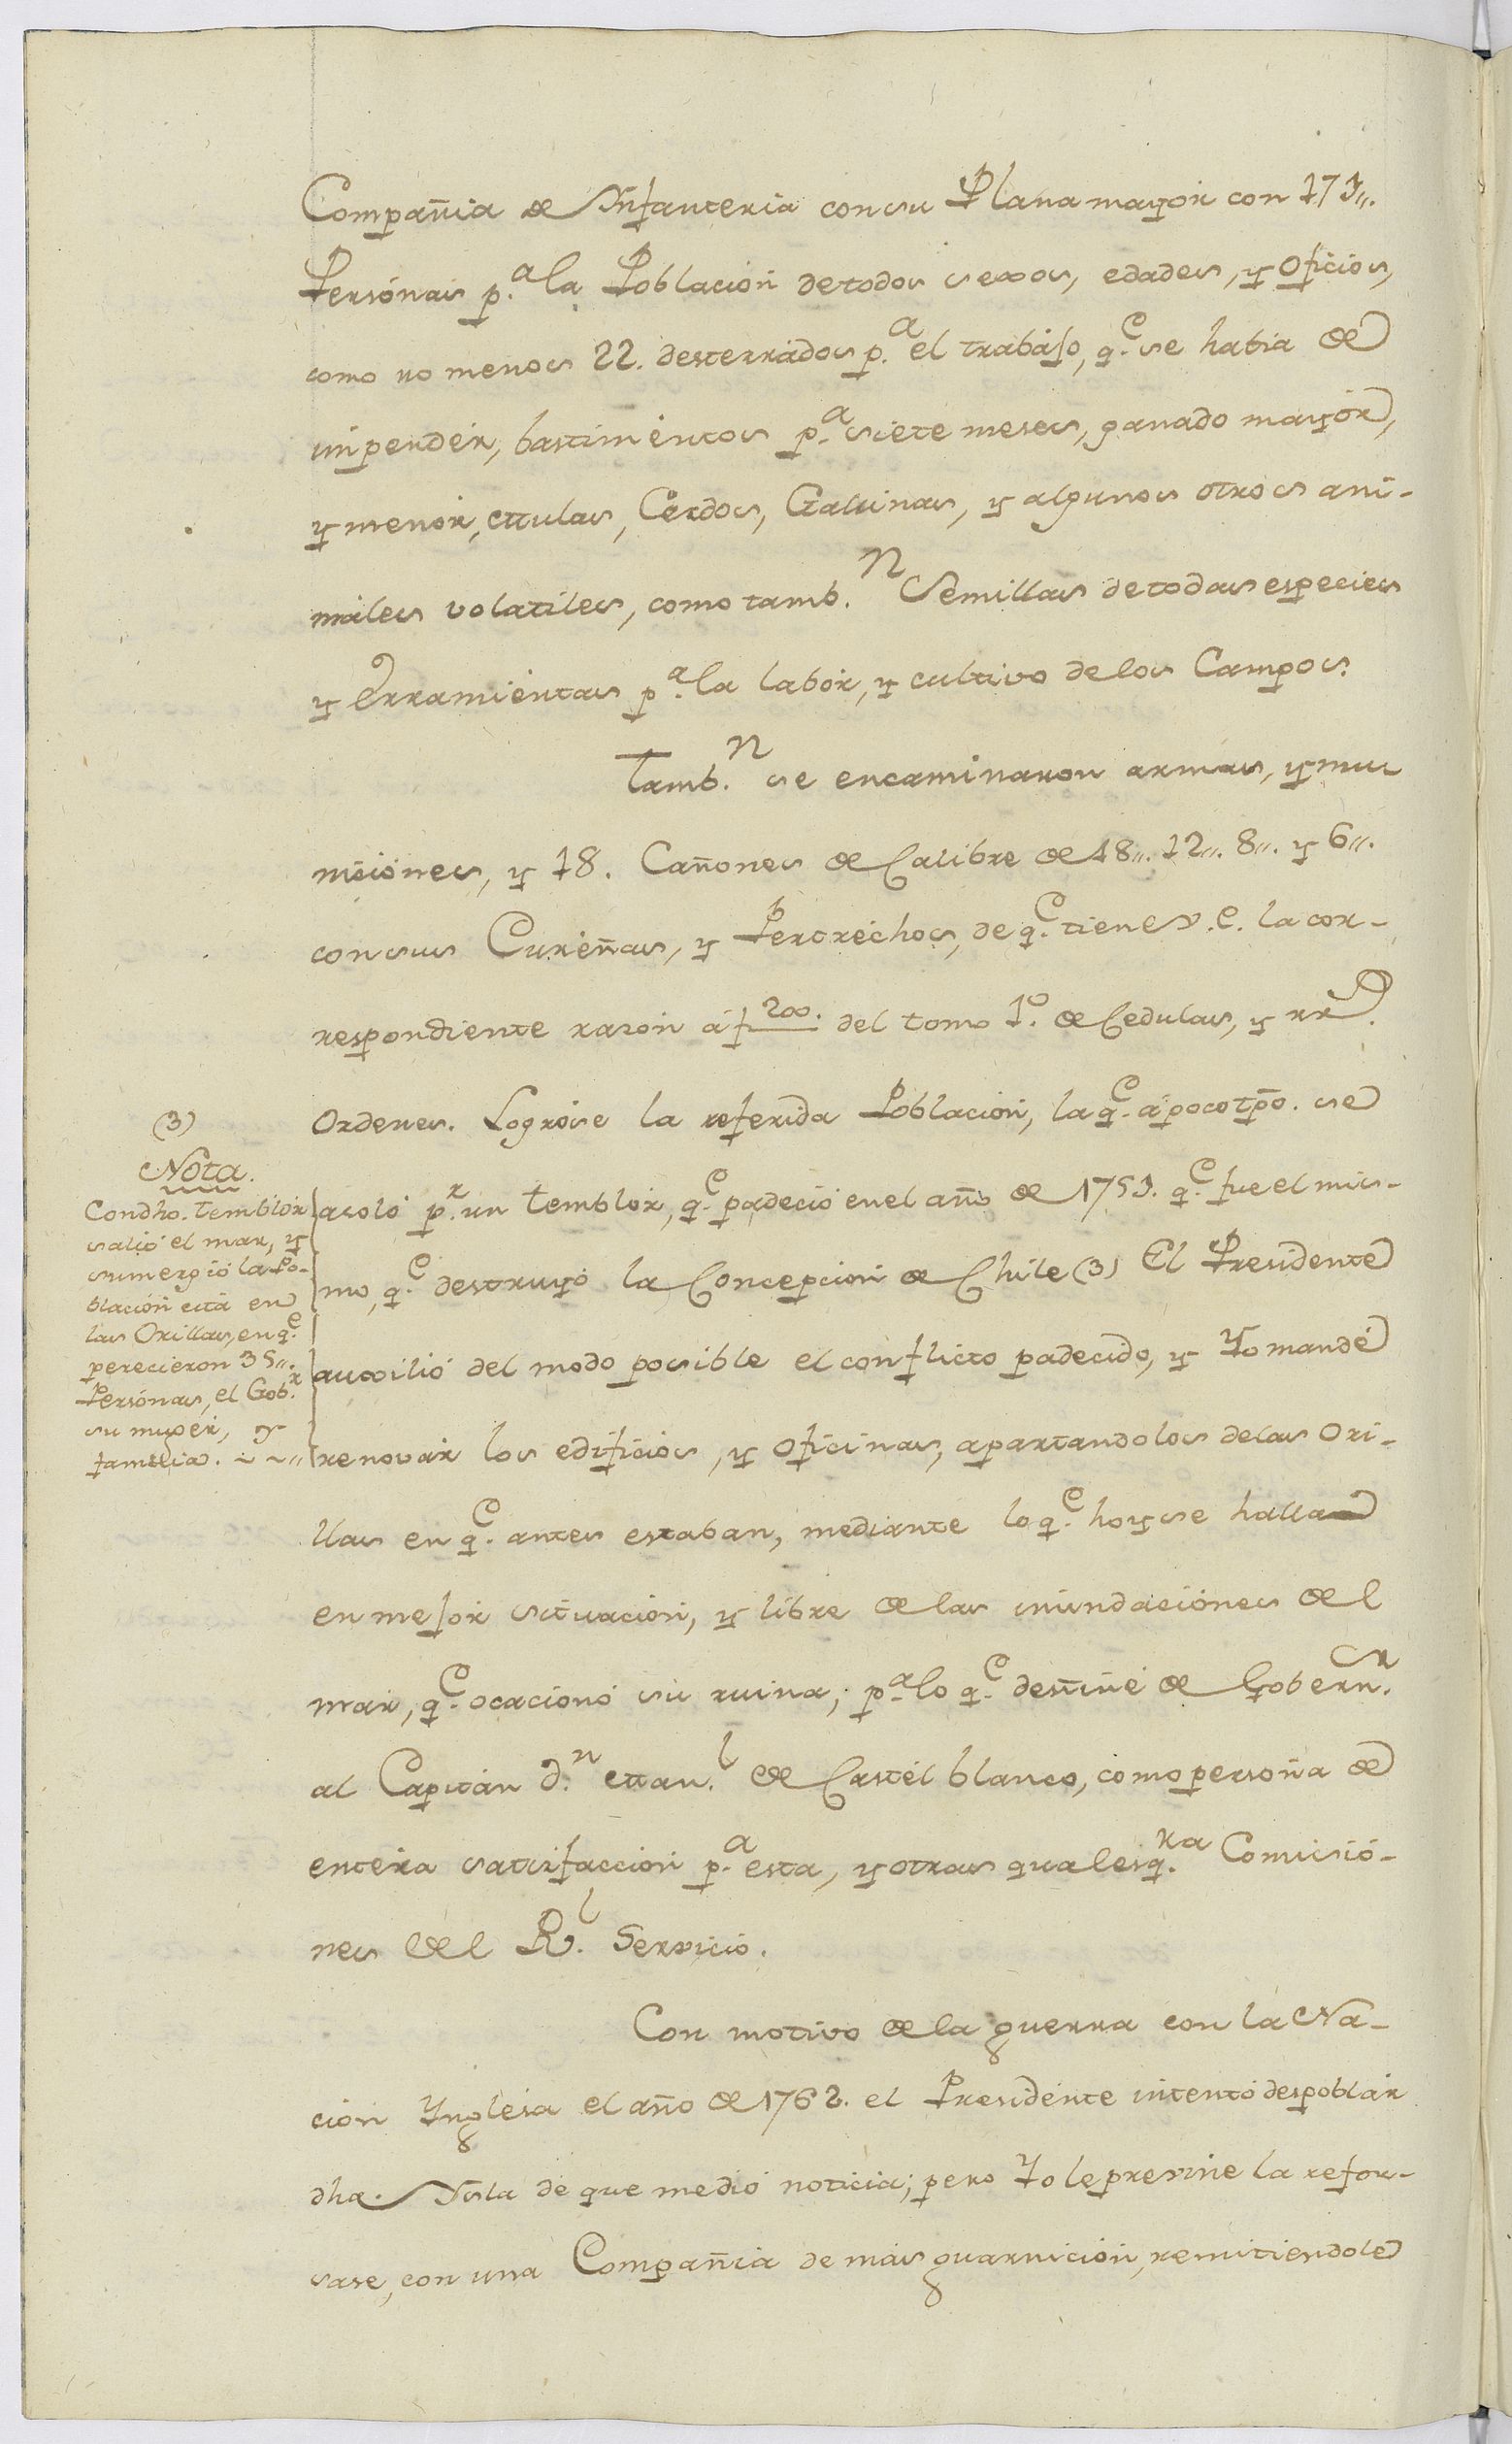 Compañia de Ynfanteria con su Plana mayor con 171,,.
Personas p.ª la Poblacion de todos sexos, edades, y oficios,
como no menos 22. desterrados p.ª el trabajo, q.e se habia de
impender, bastimentos p.ª siete meses, ganado mayor,
y menor, Mulas, Cerdos, Gallinas, y algunos otros ani-
males volatiles, como tamb.n Semillas de todas especies
y Erramientas p.ª la labor, y cultivo de los Campos.
Tamb.n se encaminaron armas, y mu
niciones, y 18. Cañones de Calibre de 18,,. 12,,. 8,,. y 6,,.
con sus Cureñas, y Pertrechos, de q.e tiene V.E. la cor-
respondiente razon á f 200. del tomo 1.º de Cedulas, y rr.s
Ordenes. Logrose la referida Poblacion, la q.e á poco tpõ. se
asoló p.r un temblor, q.e padeció en el año de 1751. q.e fue el mis-
mo, q.e destruyó la Concepcion de Chile (3) El Presidente
auxilió del modo posible el conflicto padecido, y Yo mandé
renovar los edificios, y oficinas, apartandolos de las Ori-
llas en q.e antes estaban, mediante lo q.e hoy se halla
en mejor situacion, y libre de las inundaciones del
mar, q.e ocacionó su ruina; p.ª lo q.e destiné de Gobern.or
al Capitán d.n Man.l de Castel blanco, como persona de
entera satisfaccion p.ª esta, y otras qualesq.ra Comisió-
nes del R.l Servicio.
Con motivo de la guerra con la Na-
cion Ynglesa el año de 1762. el Presidente intentó despoblar
dha. Ysla de que me dió noticia; pero Yo le previne la refor-
sase, con una Compañia de mas guarnicion, remitiendole
(3)
Nota.
Con dho. temblor
salió el mar, y
sumergió la Po-
blacion está en
las Orillas, en q.e
perecieron 35,,.
Personas, el Gob.r
su muxer, y
familia.